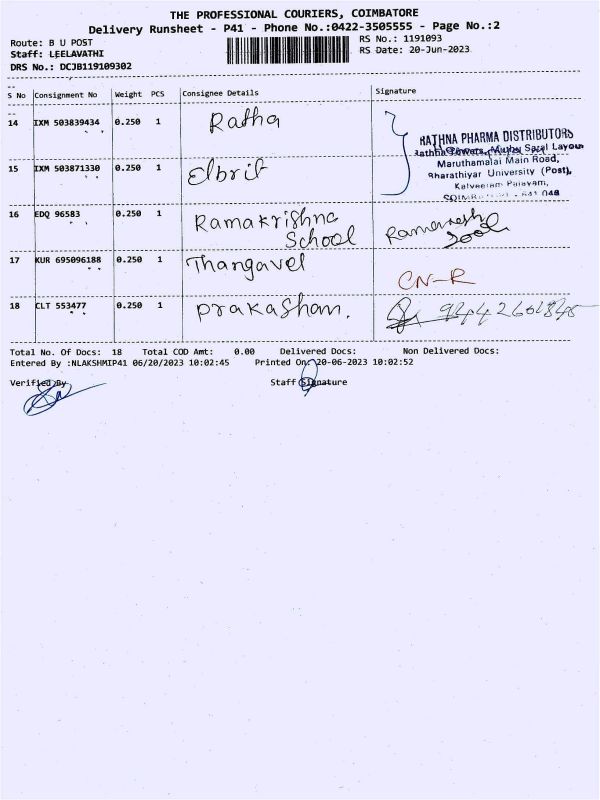 THE PROFESSIONAL COURIERS, COIMBATORE
Delivery Runsheet - P41 - Phone No.:0422-3505555 - Page No.:2
Route: B U POST
RS No.: 1191093
Staff: LEELAVATHI
RS Date: 20-Jun-2023
DRS No.: DCJB119109302
S No Consignment No Weight PCS Consignee Details Signature
14 IXM 503839434 0.250 1 Ratha
RATHNA PHARMA DISTRIBUTORS
Maruthamalai Main Road,
15 IXM 503871330 0.250 1 Elbrit
Bharathiyar University (Post),
Kalveeram Palayam,
16 EDQ 96583 0.250 1 Ramakrishna
School
17 KUR 695096188 0.250 1 Thangavel
CN-R
18 CLT 553477 0.250 1 Prakasham.
Total No. Of Docs: 18 Total COD Amt: 0.00 Delivered Docs: Non Delivered Docs:
Entered By :NLAKSHMIP41 06/20/2023 10:02:45 Printed On: 20-06-2023 10:02:52
Verified By Staff Signature